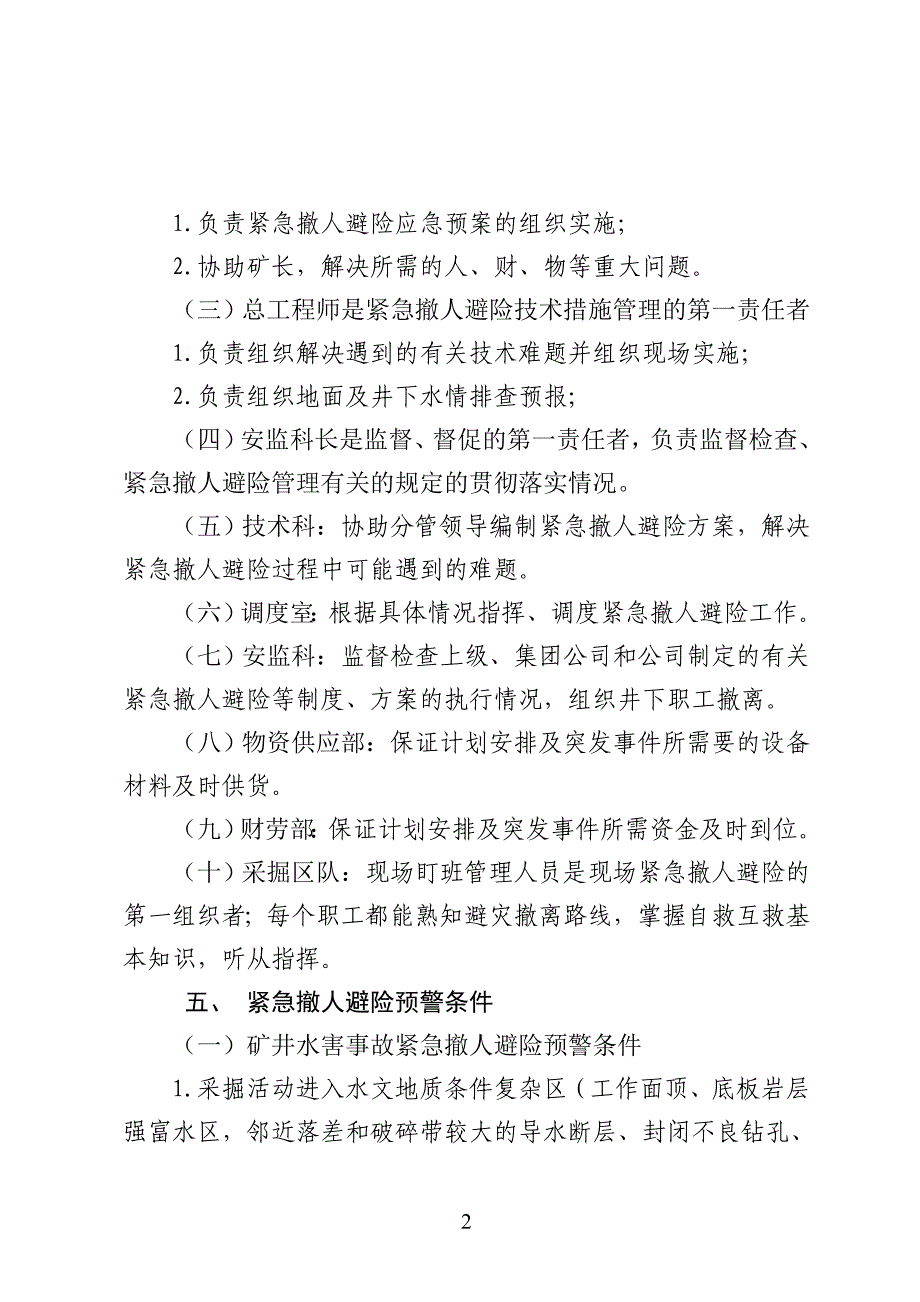 1.负责紧急撤人避险应急预案的组织实施；
2.协助矿长，解决所需的人、财、物等重大问题。
（三）总工程师是紧急撤人避险技术措施管理的第一责任者
1.负责组织解决遇到的有关技术难题并组织现场实施；
2.负责组织地面及井下水情排查预报；
（四）安监科长是监督、督促的第一责任者，负责监督检查、
紧急撤人避险管理有关的规定的贯彻落实情况。
（五）技术科：协助分管领导编制紧急撤人避险方案，解决
紧急撤人避险过程中可能遇到的难题。
（六）调度室：根据具体情况指挥、调度紧急撤人避险工作。
（七）安监科：监督检查上级、集团公司和公司制定的有关
紧急撤人避险等制度、方案的执行情况，组织井下职工撤离。
（八）物资供应部：保证计划安排及突发事件所需要的设备
材料及时供货。
（九）财劳部：保证计划安排及突发事件所需资金及时到位。
（十）采掘区队：现场盯班管理人员是现场紧急撤人避险的
第一组织者；每个职工都能熟知避灾撤离路线，掌握自救互救基
本知识，听从指挥。
五、 紧急撤人避险预警条件
（一）矿井水害事故紧急撤人避险预警条件
1.采掘活动进入水文地质条件复杂区（工作面顶、底板岩层
强富水区，邻近落差和破碎带较大的导水断层、封闭不良钻孔、
2